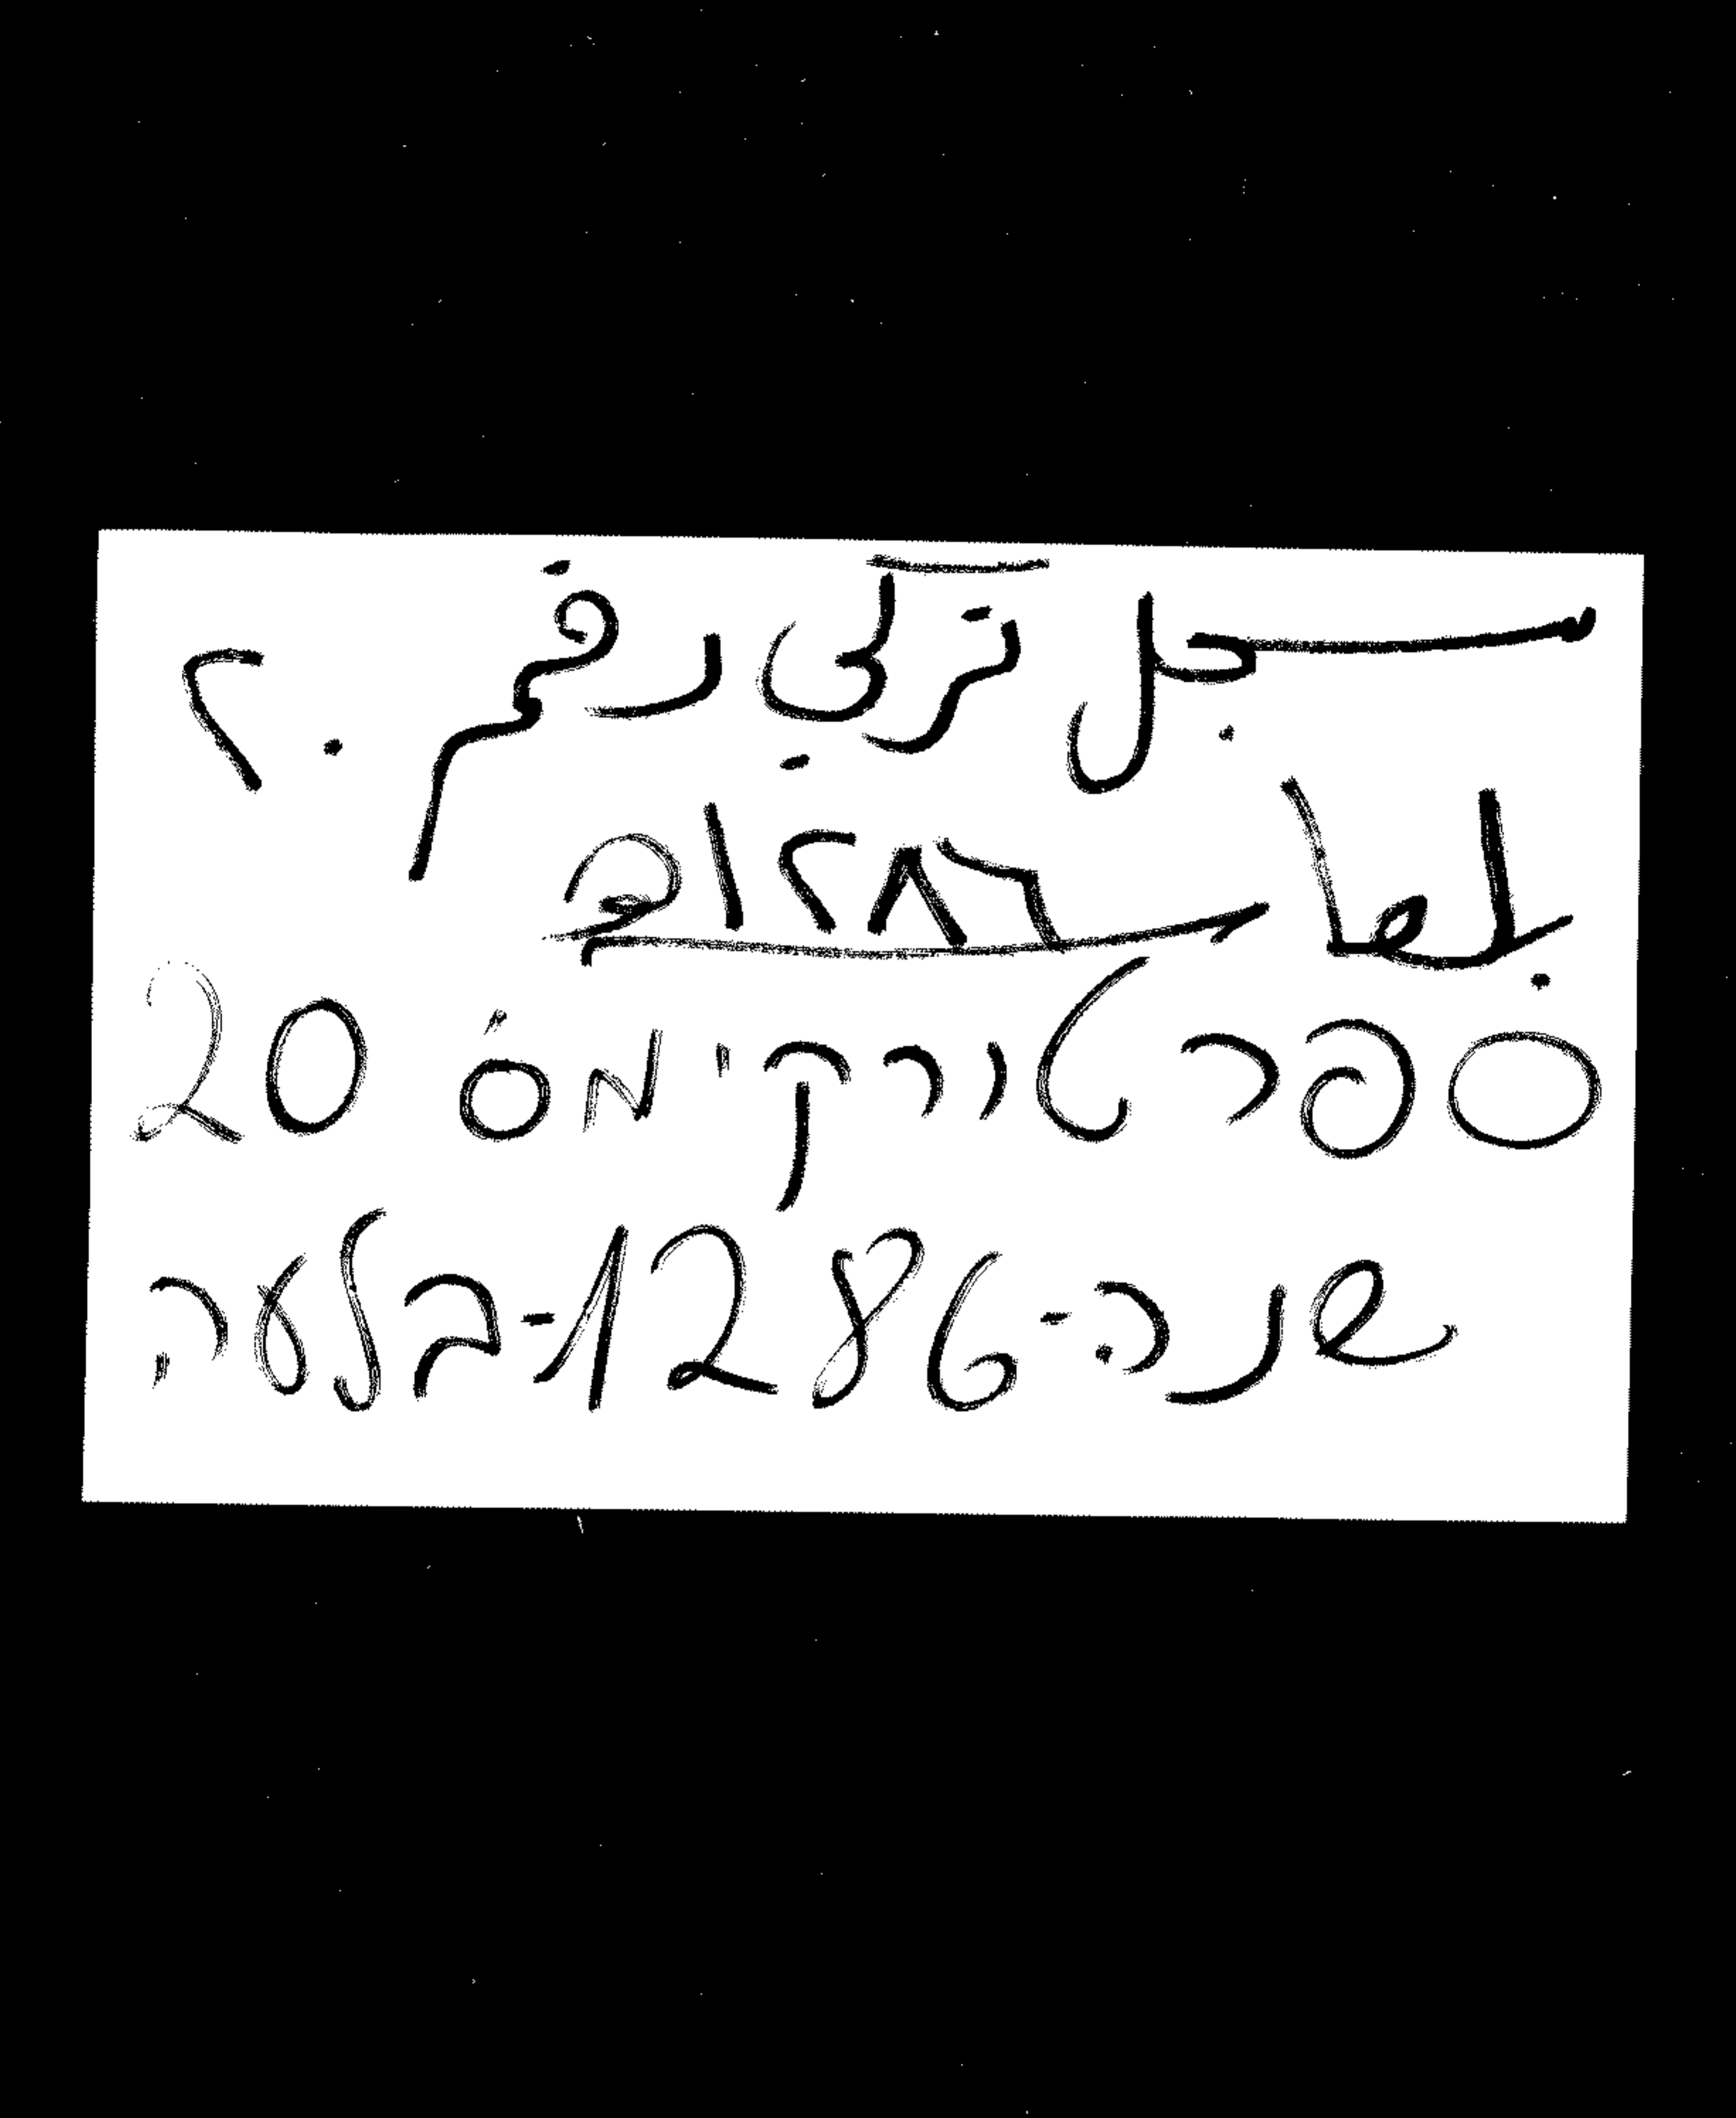 سجل تركي رقم ٢٠
بلعا سـ١٢٨٦ـنة هـ
ספר טורקי מס׳ 20
שנה-1286-בלעה